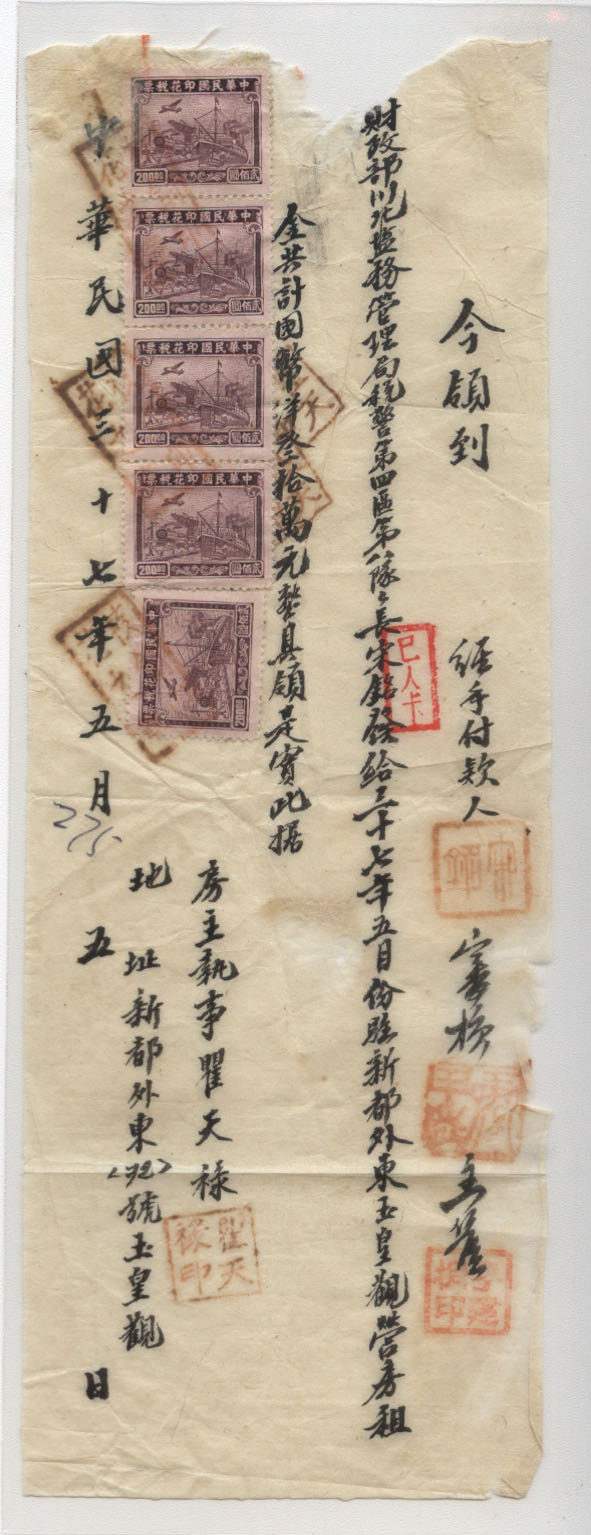 今領到
經手付款人
審核
主管
財政部川北鹽務管理局稅警第四區第八隊隊長宋銘發給三十七年五月份駐新都外東玉皇觀營房租
已入卡
金共計國幣洋叁拾萬元整具領是實此據
房主執事瞿天祿
瞿天祿印
地址新都外東(92)號玉皇觀
中華民國三十七年五月五日
225
中華民國印花稅票
200.00
貳佰圓
中華民國印花稅票
200.00
貳佰圓
中華民國印花稅票
200.00
貳佰圓
中華民國印花稅票
200.00
貳佰圓